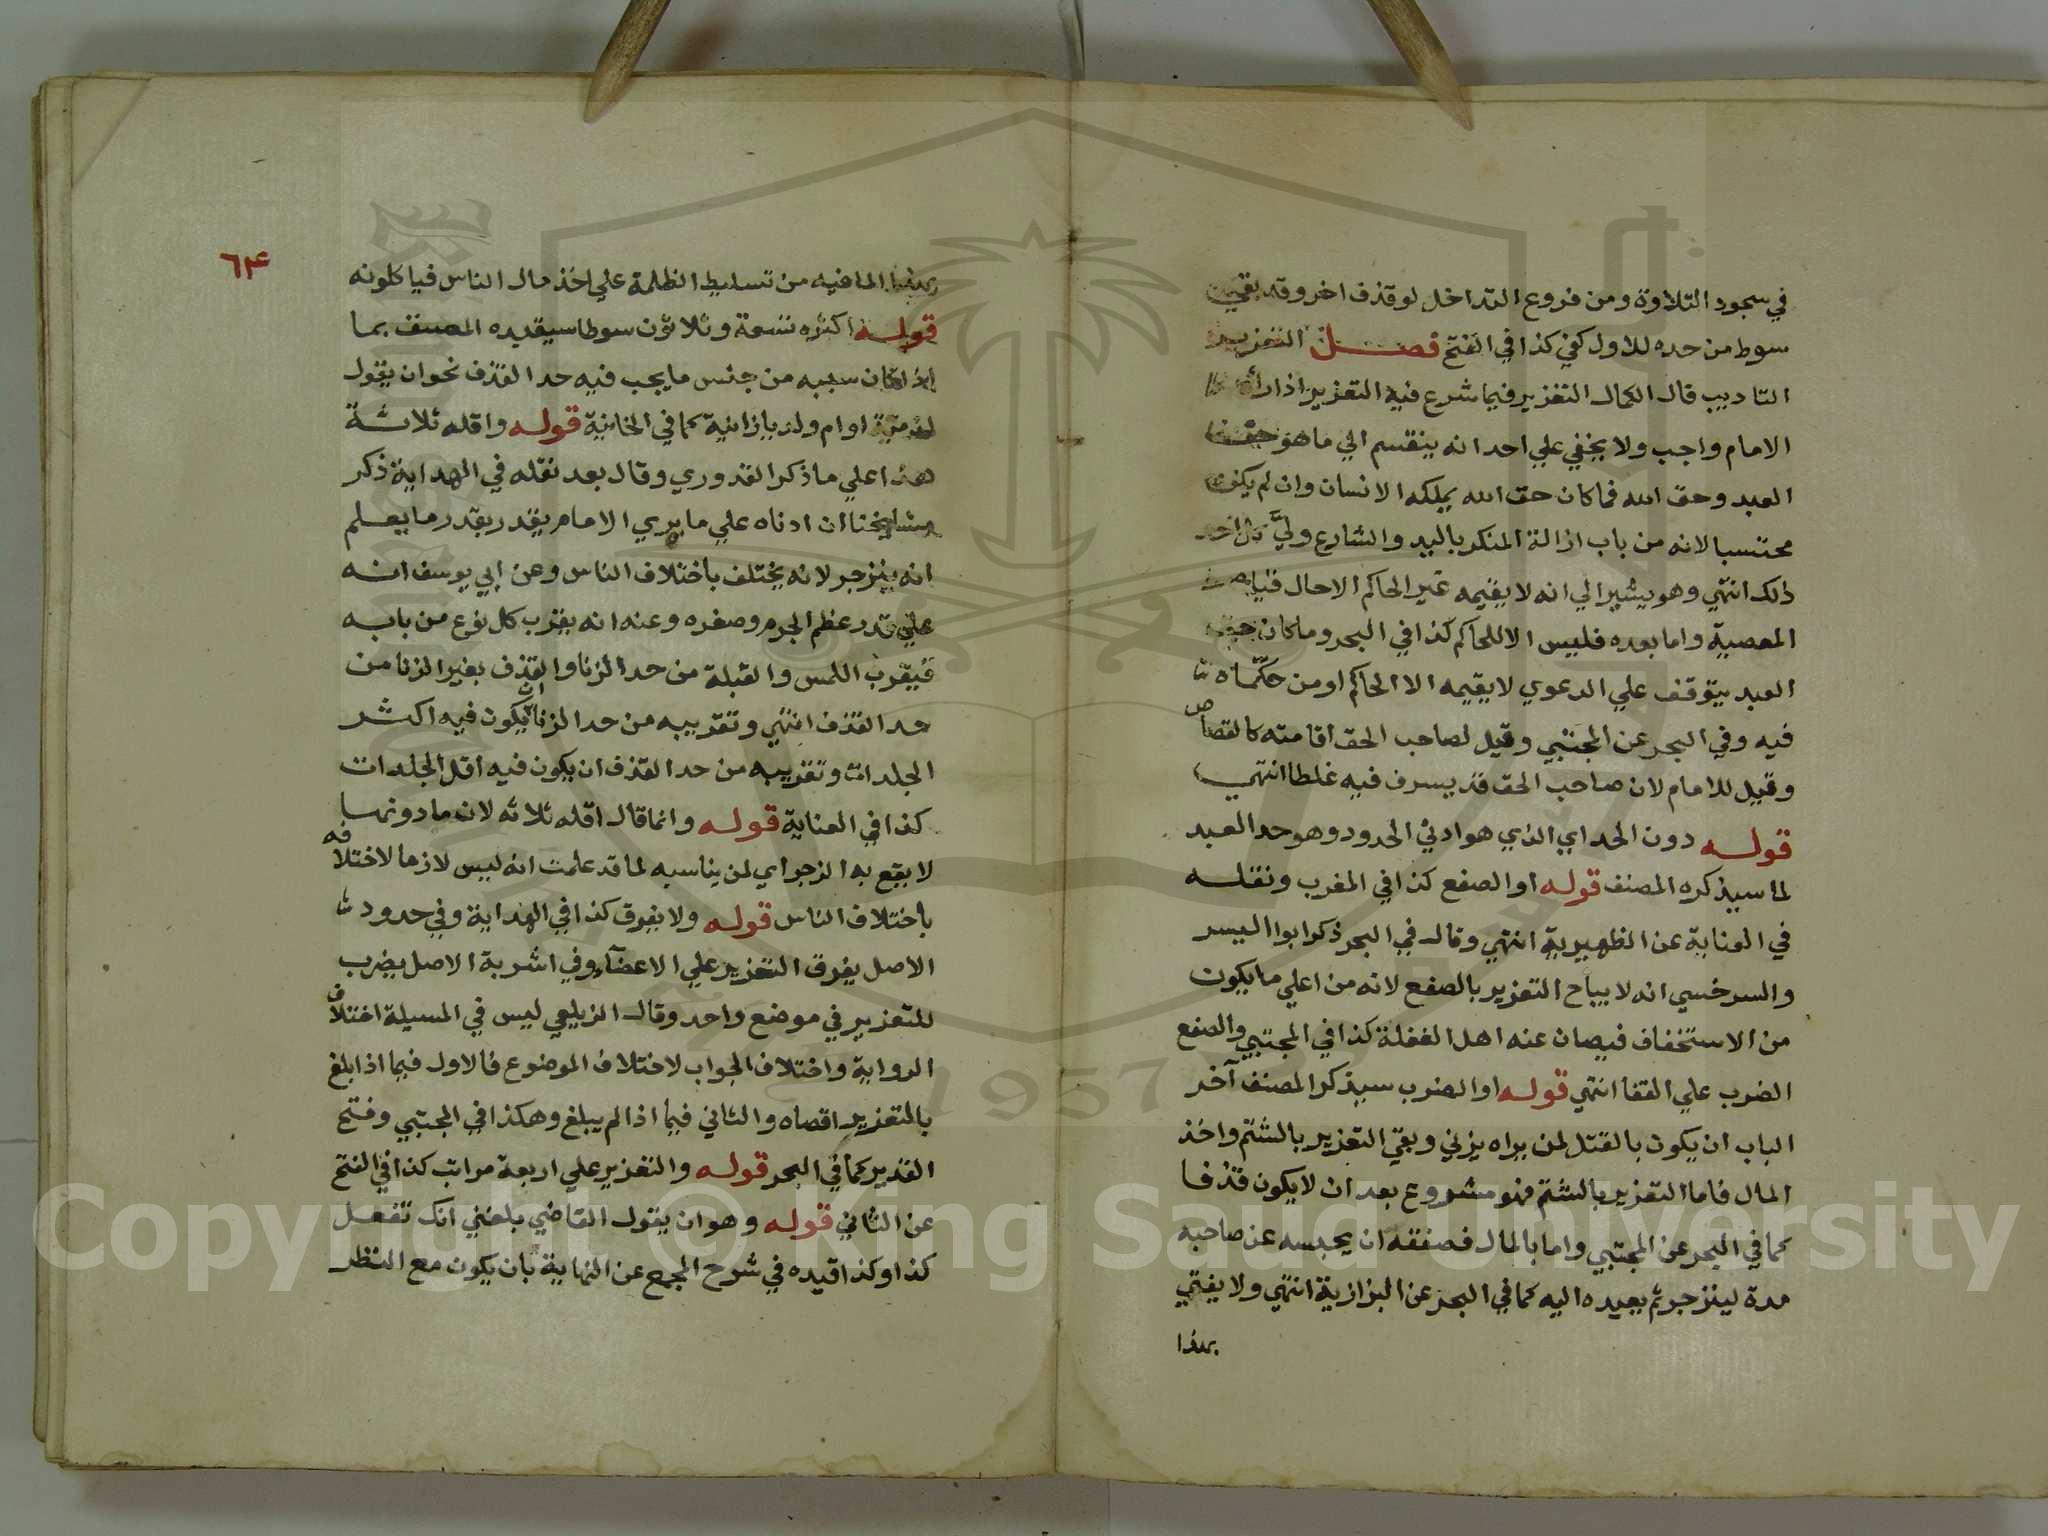 في سجود التلاوة ومن فروع التداخل لو قذف اخر وقد بقي
سوط من حده للاول كفي كذا في الفتح فصل التعزير
التاديب قال الكمال التعزير فيما شرع فيه التعزير اذا راه
الامام واجب ولا يخفي علي احد انه ينقسم الي ما هو حق
العبد وحق الله فما كان حق الله يملكه الانسان وان لم يكن
محتسبا لانه من باب ازالة المنكر باليد والشارع ولي كل احد
ذلك انتهي وهو يشير الي انه لا يقيمه غير الحاكم الا حال قيام
المعصية واما بعده فليس الا للحاكم كذا في البحر وما كان حق
العبد يتوقف علي الدعوي لا يقيمه الا الحاكم او من حكماه
فيه وفي البحر عن المجتبي وقيل لصاحب الحق اقامته كالقصاص
وقيل للامام لان صاحب الحق قد يسرف فيه غلطا انتهي
قوله دون الحد اي الذي هو ادني الحدود وهو حد العبد
لما سيذكره المصنف قوله او الصفع كذا في المغرب ونقله
في العناية عن الظهيرية انتهي وقال في البحر ذكر ابوا اليسر
والسرخسي انه لا يباح التعزير بالصفع لانه من اعلي ما يكون
من الاستخفاف فيصان عنه اهل الغفلة كذا في المجتبي والصفع
الضرب علي القفا انتهي قوله او الضرب سيذكر المصنف آخر
الباب ان يكون بالقتل لمن يراه يزني وبقي التعزير بالشتم واخذ
المال فاما التعزير بالشتم فهو مشروع بعد ان لا يكون قذفا
كما في البحر عن المجتبي واما بالمال فصفقه ان يحبسه عن صاحبه
مدة لينزجر ثم يعيده اليه كما في البحر عن البزازية انتهي ولا يفتي
بهذا
٦٤
بهذا لما فيه من تسليط الظلمة علي اخذ مال الناس فياكلونه
قوله اكثره تسعة وثلاثون سوطا سيقيده المصنف بما
اذا كان سببه من جنس ما يجب فيه حد القذف نحو ان يقول
لذمية او ام ولد يا زانية كما في الخانية قوله واقله ثلاثة
هذا علي ما ذكر القدوري وقال بعد نقله في الهداية ذكر
مشايخنا ان ادناه علي ما يري الامام يقدر بقدر ما يعلم
انه ينزجر لانه يختلف باختلاف الناس وعن ابي يوسف انه
علي قدر عظم الجرم وصغره وعنه انه يقرب كل نوع من بابه
فيقرب اللمس والقبلة من حد الزنا والقذف بغير الزنا من
حد القذف انتهي وتقريبه من حد الزنا ان يكون فيه اكثر
الجلدات وتقريبه من حد القذف ان يكون فيه اقل الجلدات
كذا في العناية قوله وانما قال اقله ثلاثه لان ما دونها
لا يقع به الزجر اي لمن يناسبه لما قد علمت انه ليس لازما لاختلافه
باختلاف الناس قوله ولا يفرق كذا في الهداية وفي حدود
الاصل يفرق التعزير علي الاعضآء وفي اشربة الاصل يضرب
للتعزير في موضع واحد وقال الزيلعي ليس في المسيلة اختلاف
الرواية واختلاف الجواب لاختلاف الموضوع فالاول فيما اذا بلغ
بالتعزير اقصاه والثاني فيما اذا لم يبلغ وهكذا في المجتبي وفتح
القدير كما في البحر قوله والتعزير علي اربعة مراتب كذا في الفتح
عن الثاني قوله وهو ان يقول القاضي بلغني انك تفعل
كذا وكذا قيده في شرح المجمع عن النهاية بان يكون مع النظر
Copyright © King Saud University
1957